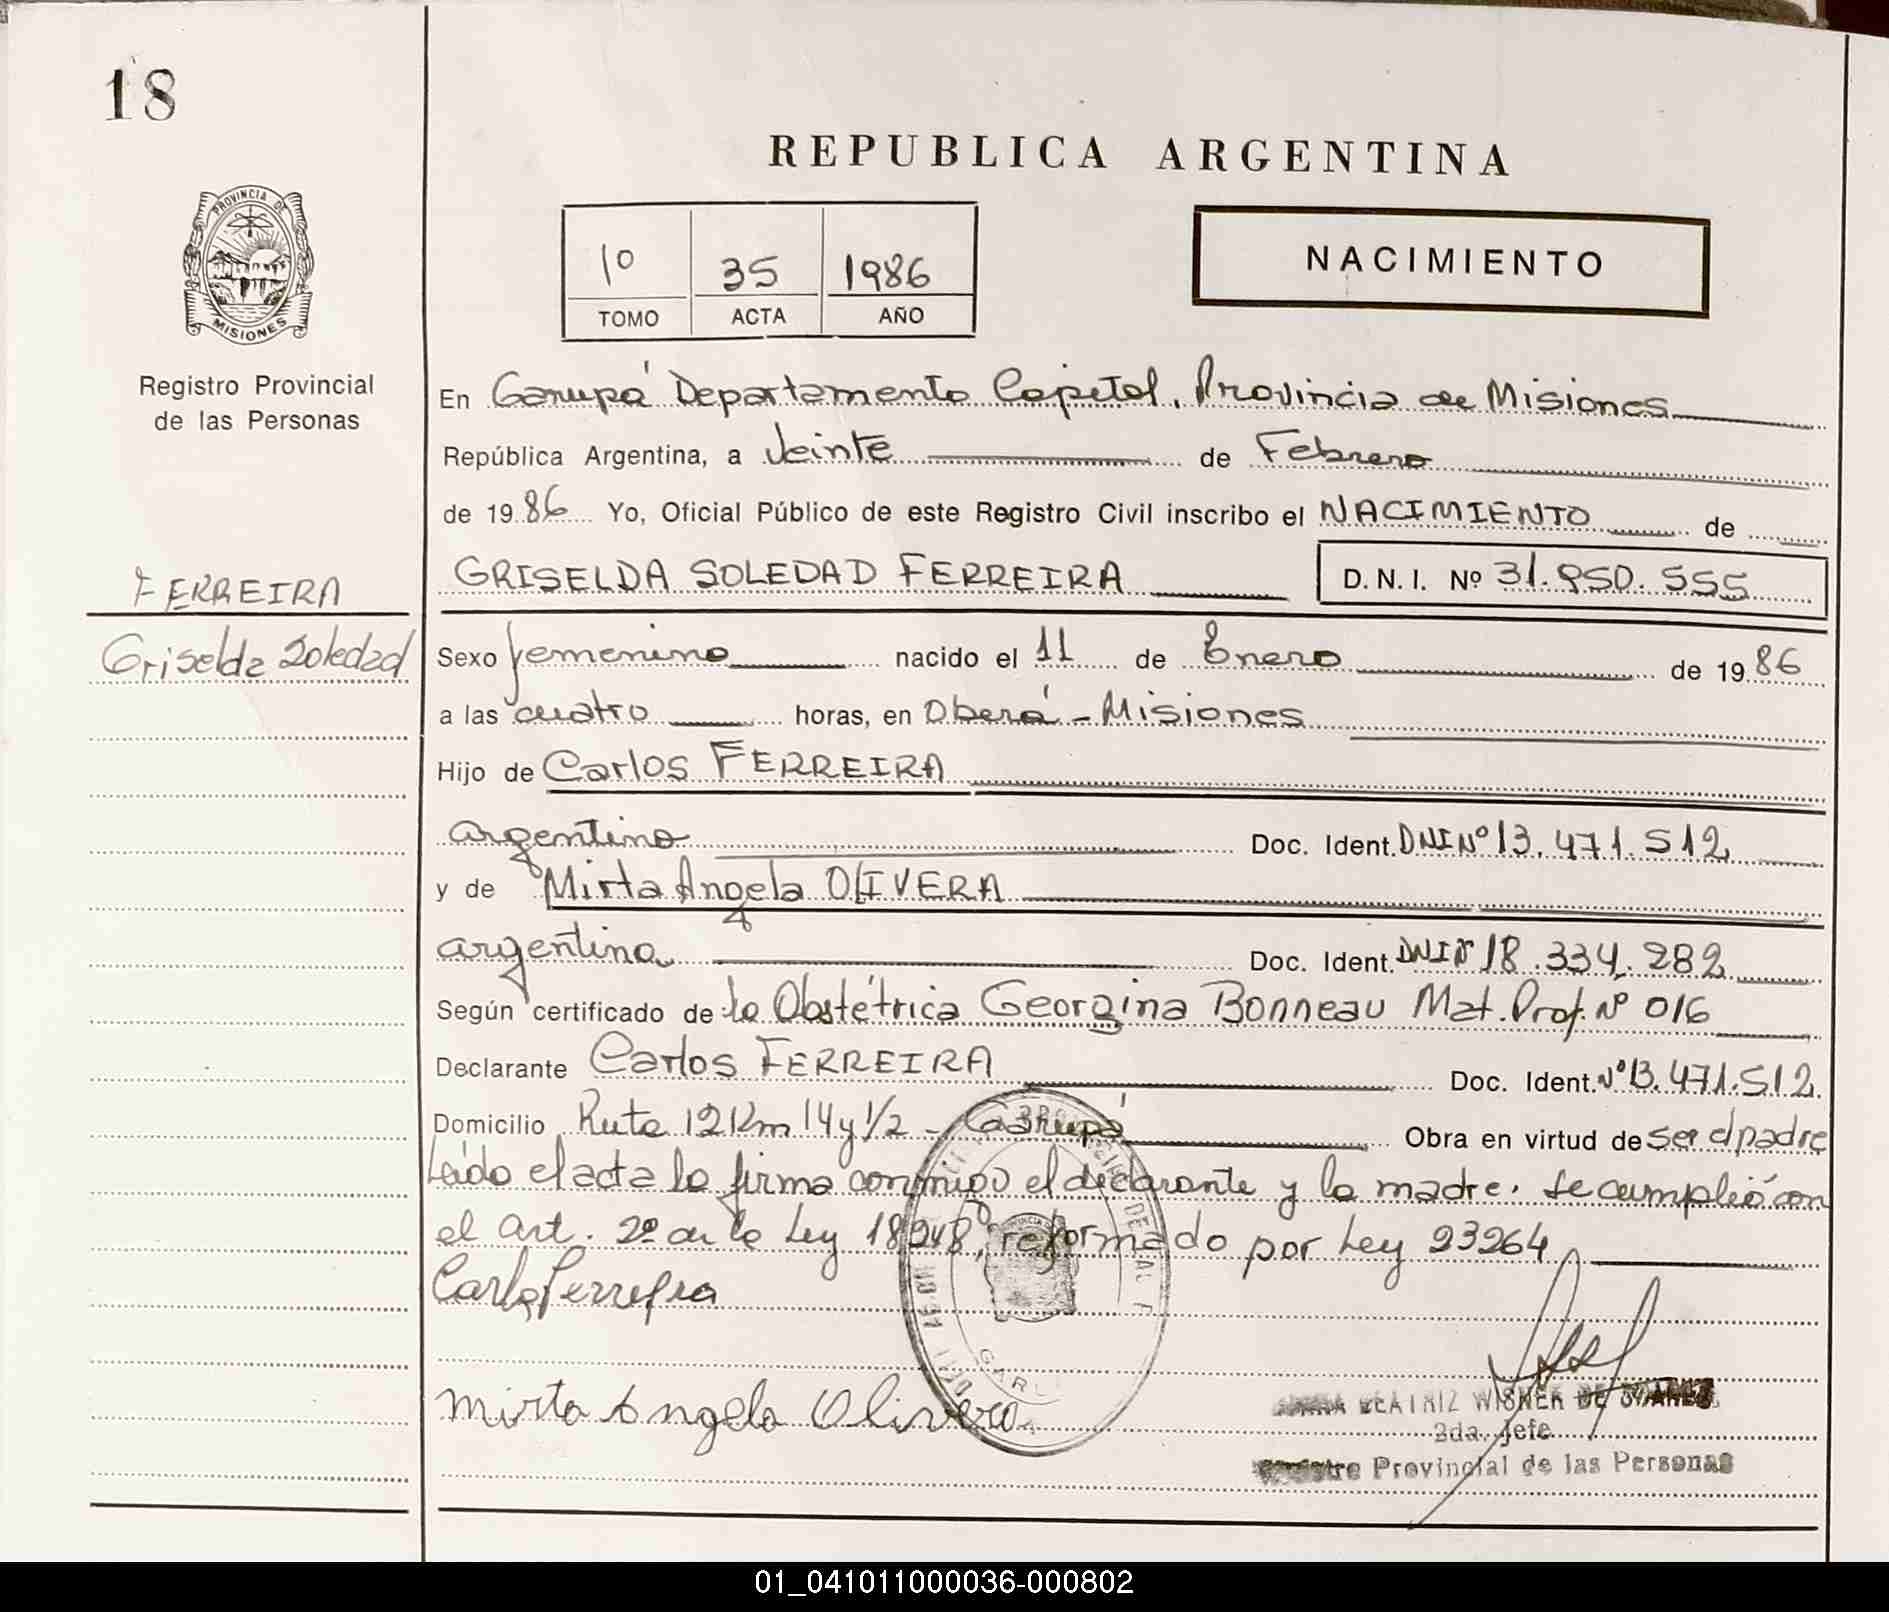 18
REPUBLICA ARGENTINA
PROVINCIA DE
MISIONES
1º 35 1986
TOMO ACTA AÑO
NACIMIENTO
Registro Provincial
de las Personas
En Garupá Departamento Capital, Provincia de Misiones
República Argentina, a Veinte de Febrero
de 1986 Yo, Oficial Público de este Registro Civil inscribo el NACIMIENTO de
FERREIRA
Griselda Soledad
GRISELDA SOLEDAD FERREIRA D.N.I. Nº 31.950.555
Sexo femenino nacido el 11 de Enero de 1986
a las cuatro horas, en Oberá - Misiones
Hijo de Carlos FERREIRA
argentino Doc. Ident. DNI Nº 13.471.512
y de Mirta Angela OLIVERA
argentina Doc. Ident. DNI Nº 18.334.282
Según certificado de la Obstétrica Georgina Bonneau Mat. Prof. Nº 016
Declarante Carlos FERREIRA Doc. Ident. Nº 13.471.512
Domicilio Ruta 12 Km 14 y 1/2 - Garupá Obra en virtud de ser el padre
Leído el acta la firma conmigo el declarante y la madre. Se cumplió con
el art. 2º de la Ley 18248, reformado por Ley 23264
Carlos Ferreira
Mirta Angela Olivera
BEATRIZ WISNER DE SUAREZ
2da. Jefe
Registro Provincial de las Personas
01_041011000036-000802